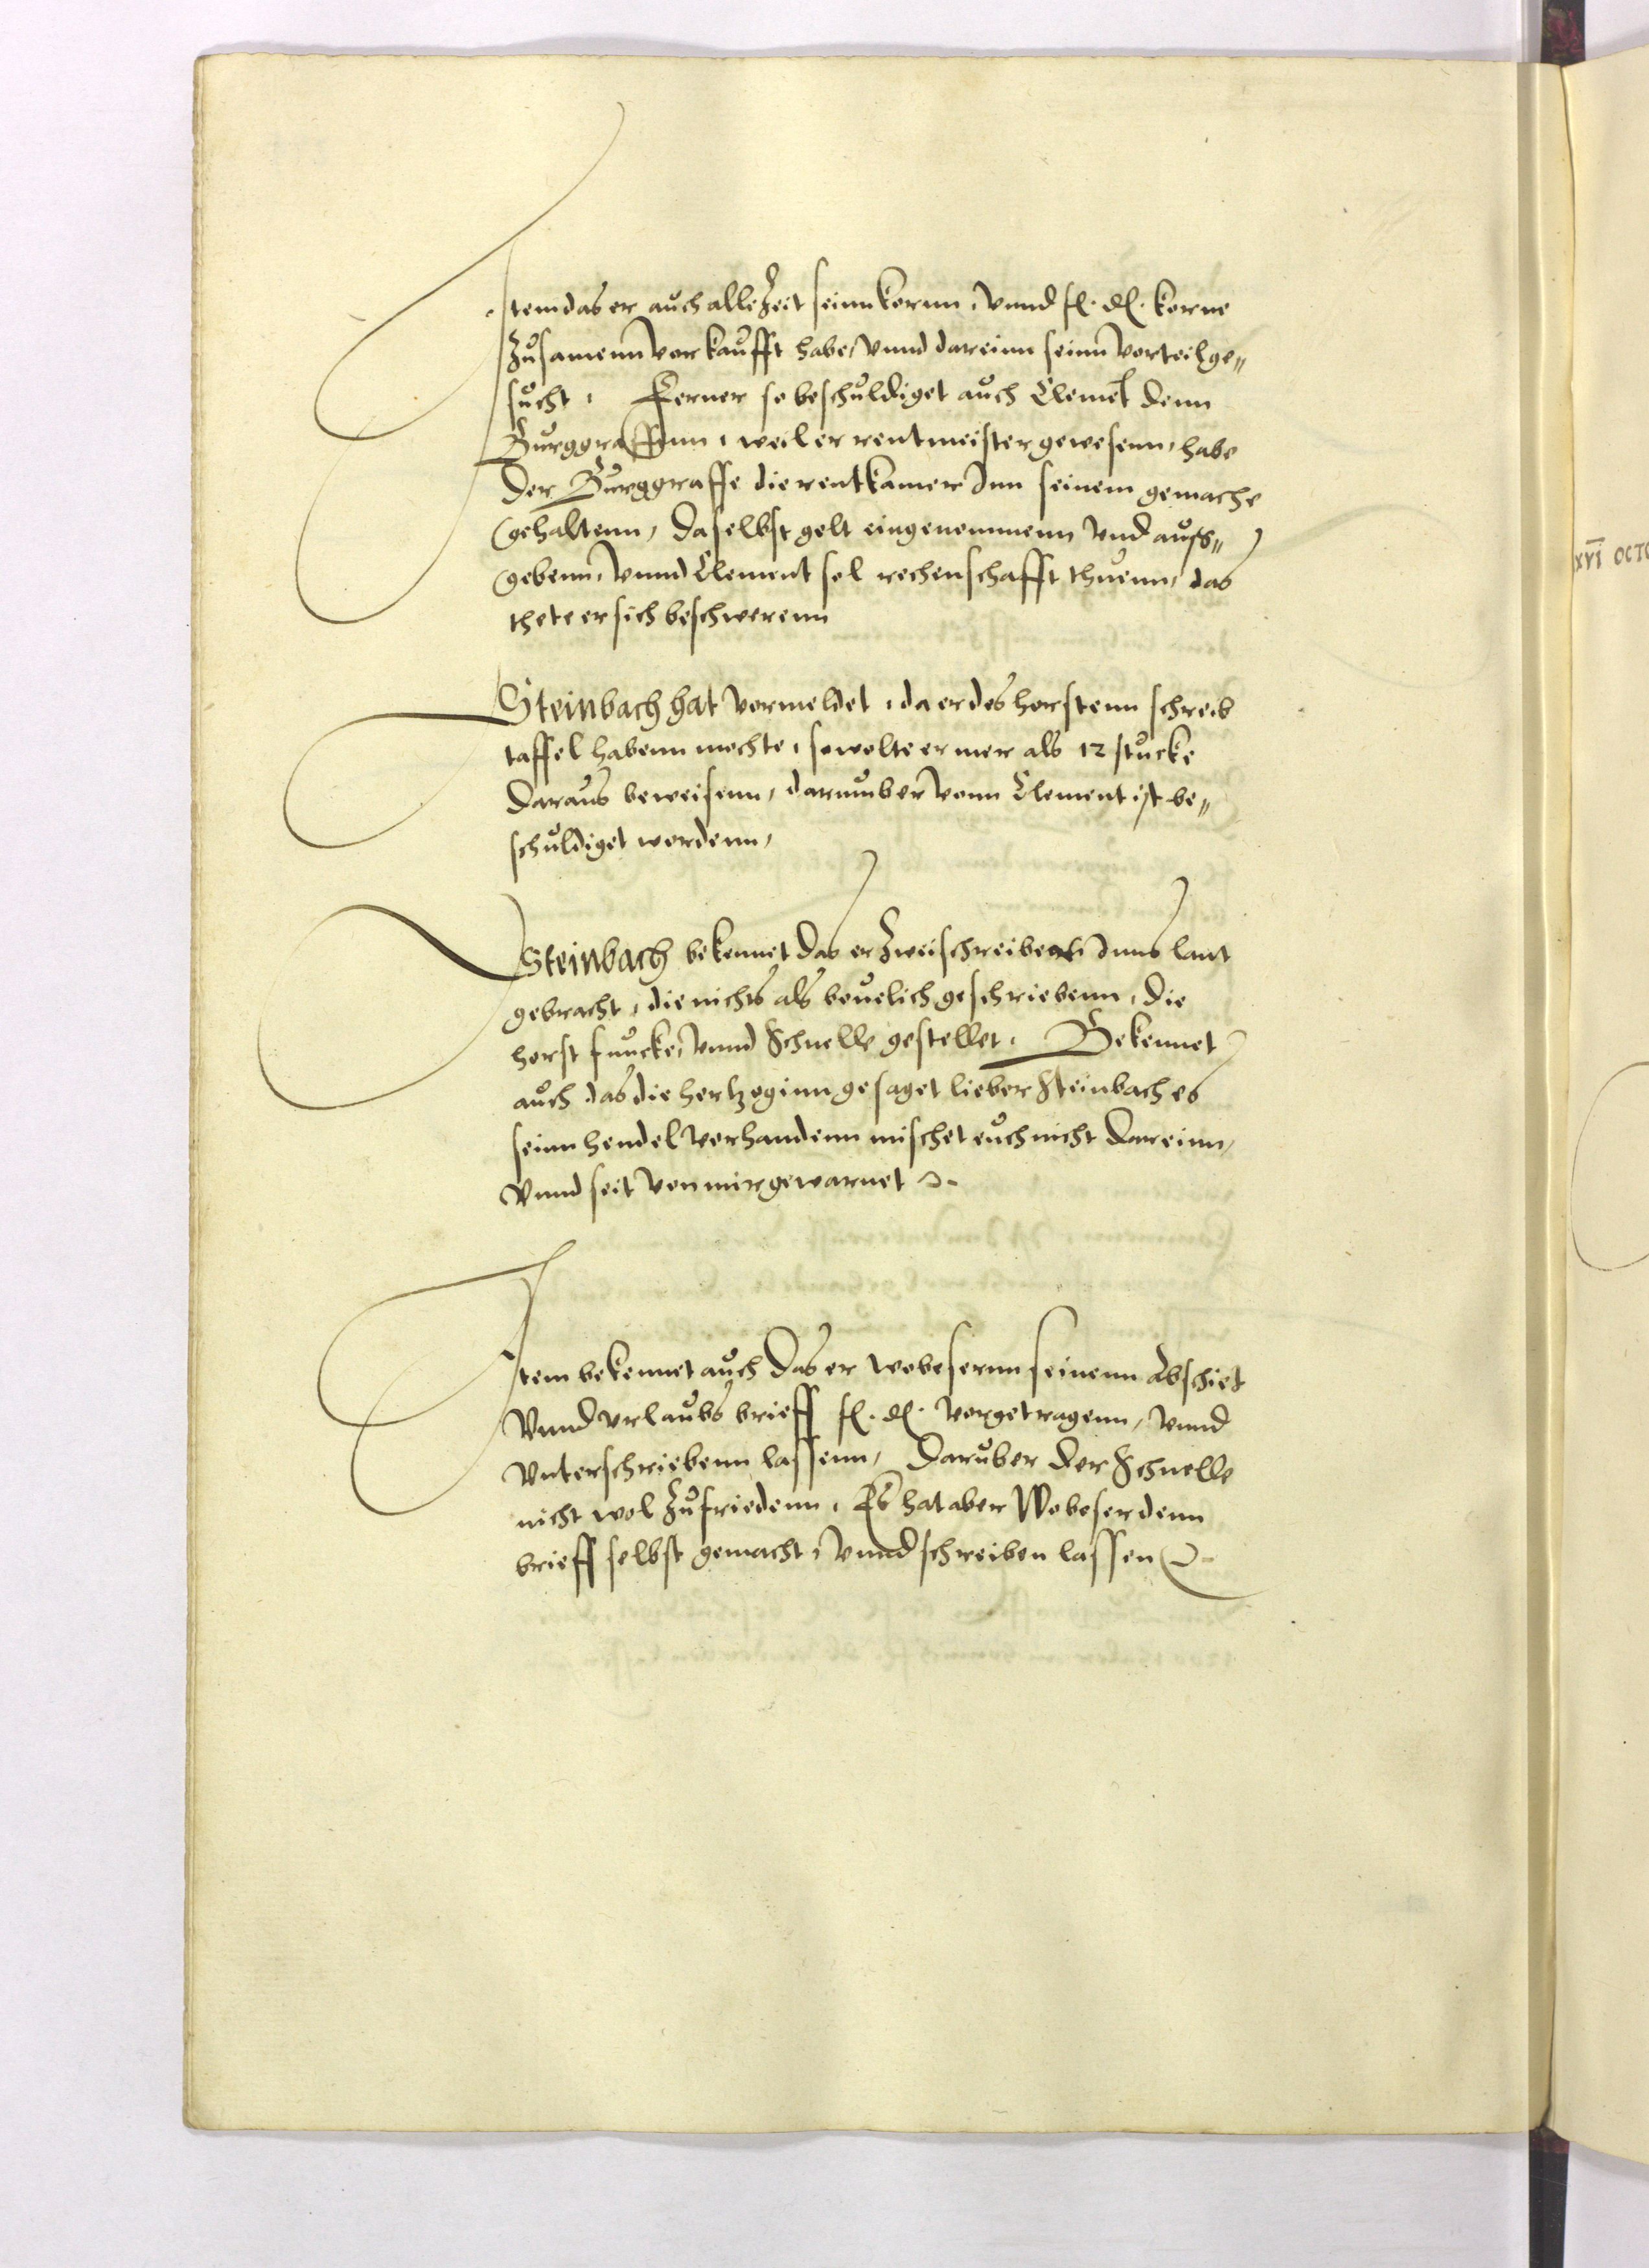 Item das er auch alle Zeit seinn kornn, vnnd f. d. korne
Zusamenn vorkaufft habe, vnnd dareinn seinn vorteil ge„
sucht. Ferner so beschuldiget auch Clement denn
Burggraffenn, weil er rentmeister gewesenn, habe
der Burggraffe die rentkamer Jnn seinem gemache
gehaltenn, daselbst gelt eingenommenn vnd aufs„
gebenn, vnnd Clement sol rechenschafft thuenn, das
thete er sich beschwerenn
Steinbach hat vormeldet, da er des horstenn schreib
taffel habenn mochte, so wolte er mer als 12 stucke
daraus beweisenn, darumber vonn Clement ist be„
schuldiget wordenn,
Steinbach bekennet das er Zwei schreiber Jnns lant
gebracht, die nichts als beuelich geschriebenn, die
horst funcke, vnnd Schnelle gestellet. Bekennet
auch das die hertzoginn gesaget lieber Steinbach es
seinn hendel vorhandenn mischet euch nicht dareinn,
vnnd seit von mir gewarnet
Item bekennet auch das er wobesernn seinenn abschiet
vnnd vrlaubs brieff f. d. vorgetragenn, vnnd
vnterschriebenn lassenn, daruber der Schnelle
nicht wol Zufriedenn, Es hat aber Wobeser denn
brieff selbst gemacht, vnnd schreiben lassen
XXVI OCTO